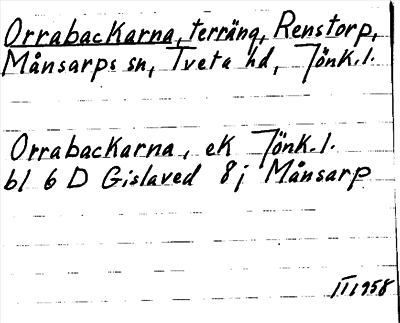 Orrabackarna, terräng, Renstorp,
Månsarps sn, Tveta hd, Jönk.l.
Orrabackarna, ek Jönk.l.
bl 6 D Gislaved 8j Månsarp
III 1958